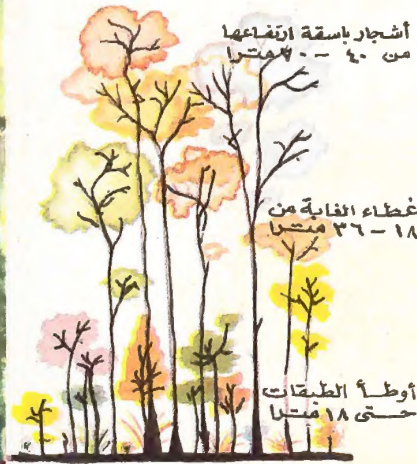 أشجار باسقة ارتفاعها
من ٤٠ - ٣٠ مترا
غطاء الغابة من
١٨ - ٣٦ مترا
أوطأ الطبقات
حتى ١٨ مترا